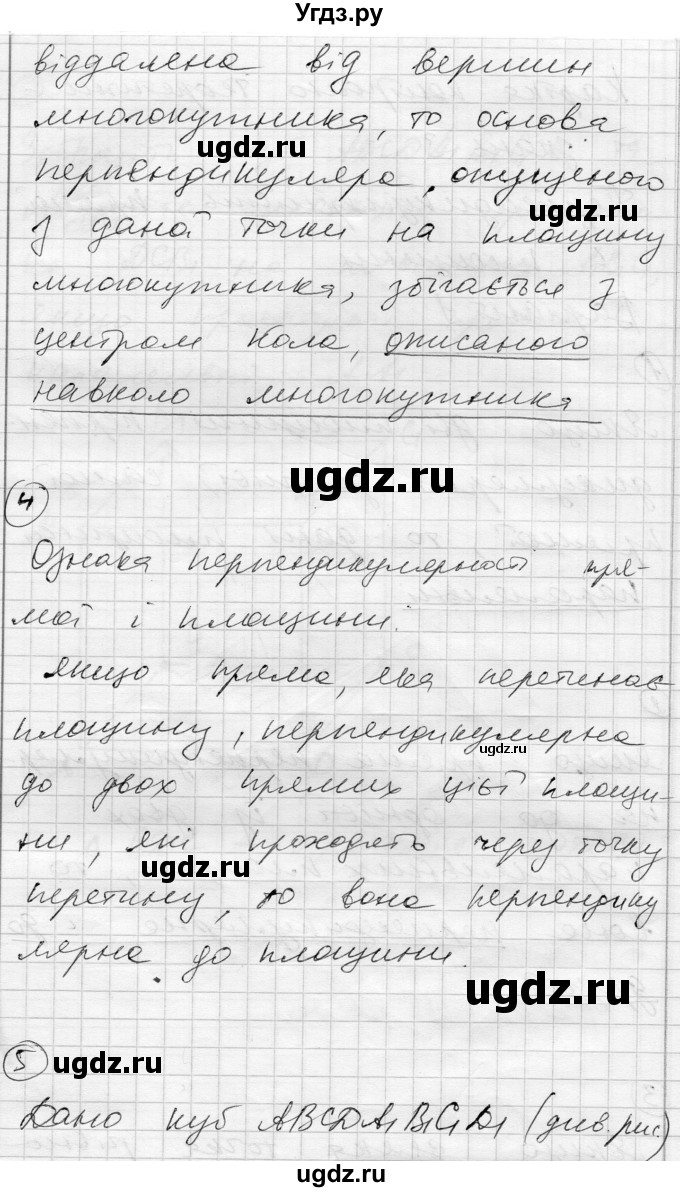 Угдз.ру
віддалена від вершин
многокутника, то основа
ugdz.ru
перпендикуляра, опущеного
ugdz.ru
з даної точки на площину
многокутника, збігається з
центром кола, описаного
навколо многокутника
ugdz.ru
4
Ознака перпендикулярності пря-
мої і площини.
Якщо пряма, яка перетинає
площину, перпендикулярна
ugdz.ru
до двох прямих цієї площи-
ни, які проходять через точку
ugdz.ru
перетину, то вона перпендику
лярна до площини.
ugdz.ru
5 ugdz.ru
Дано куб ABCDA₁B₁C₁D₁ (див. рис.)
ugdz.ru